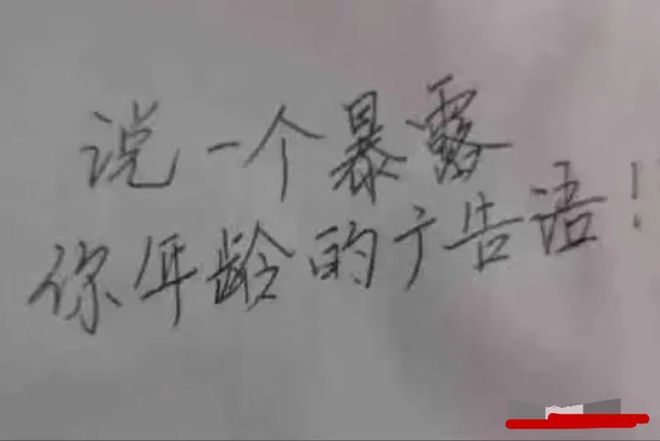 说一个暴露
你年龄的广告语！